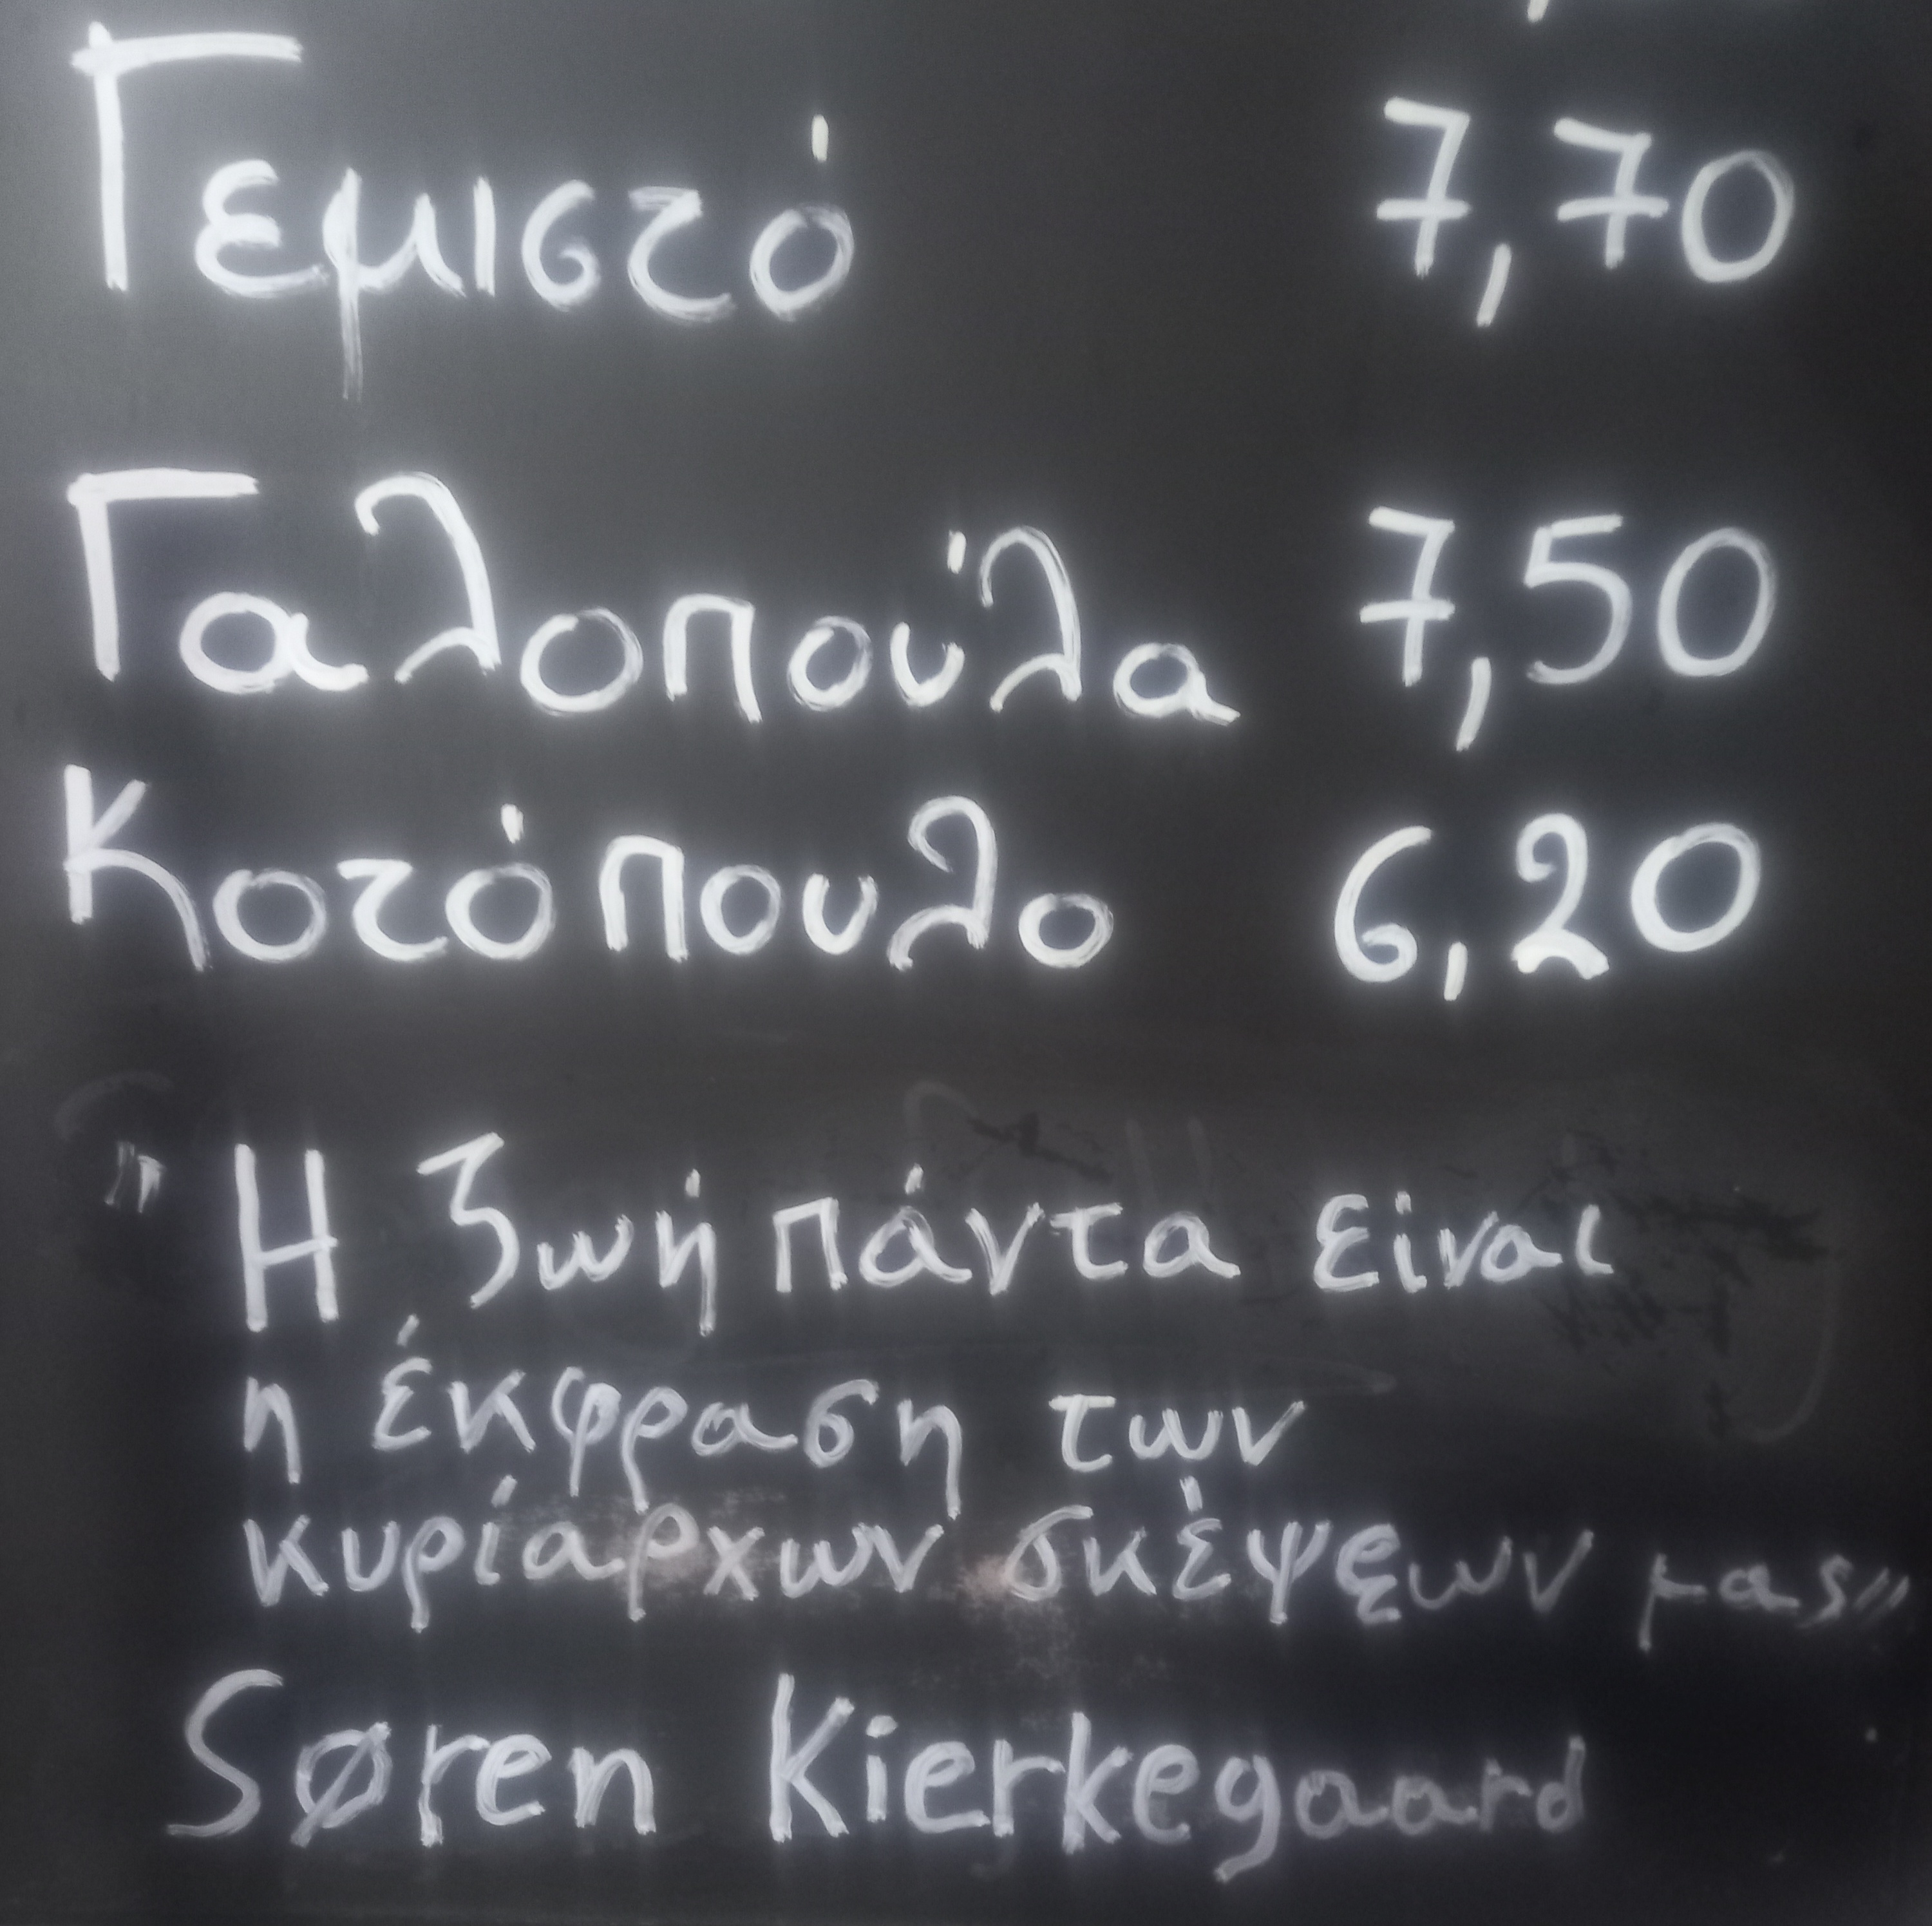 Γεμιστό 7,70
Γαλοπούλα 7,50
Κοτόπουλο 6,20
"Η ζωή πάντα είναι
η έκφραση των
κυρίαρχων σκέψεων μας"
Søren Kierkegaard